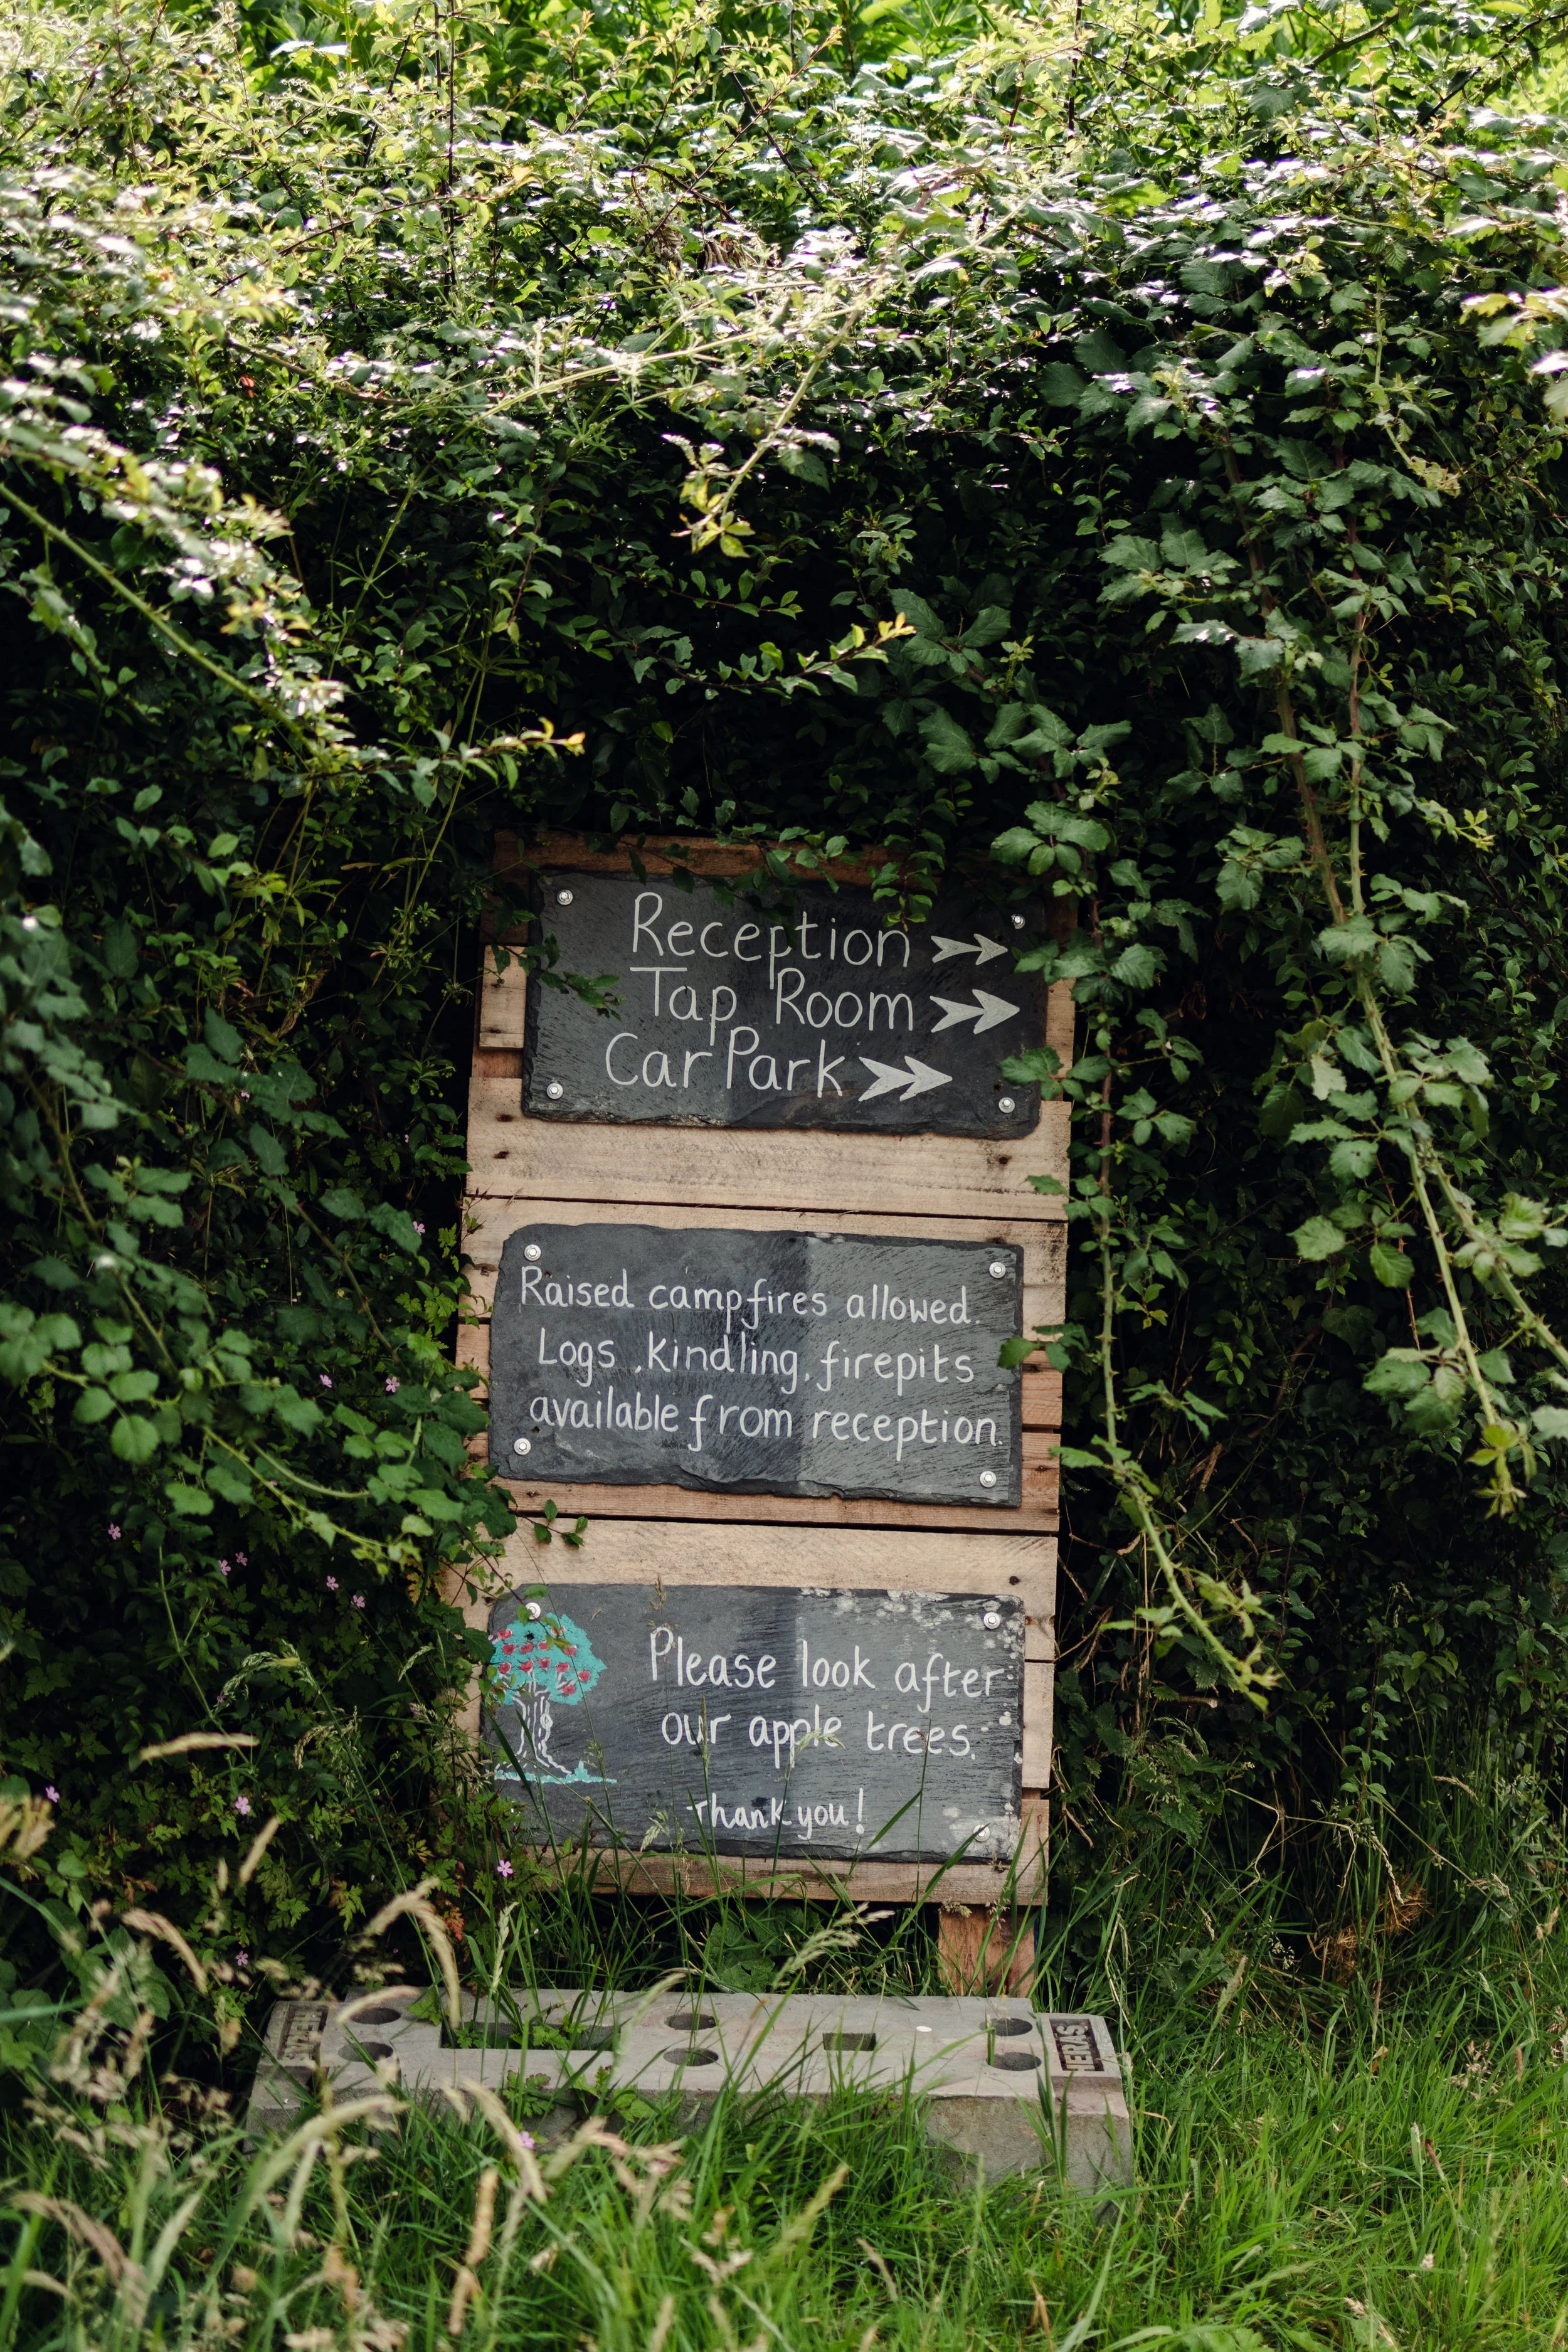 Reception
Tap Room
Car Park
Raised campfires allowed.
Logs, kindling, firepits
available from reception.
Please look after
our apple trees.
Thank you!
HERAS
HERAS